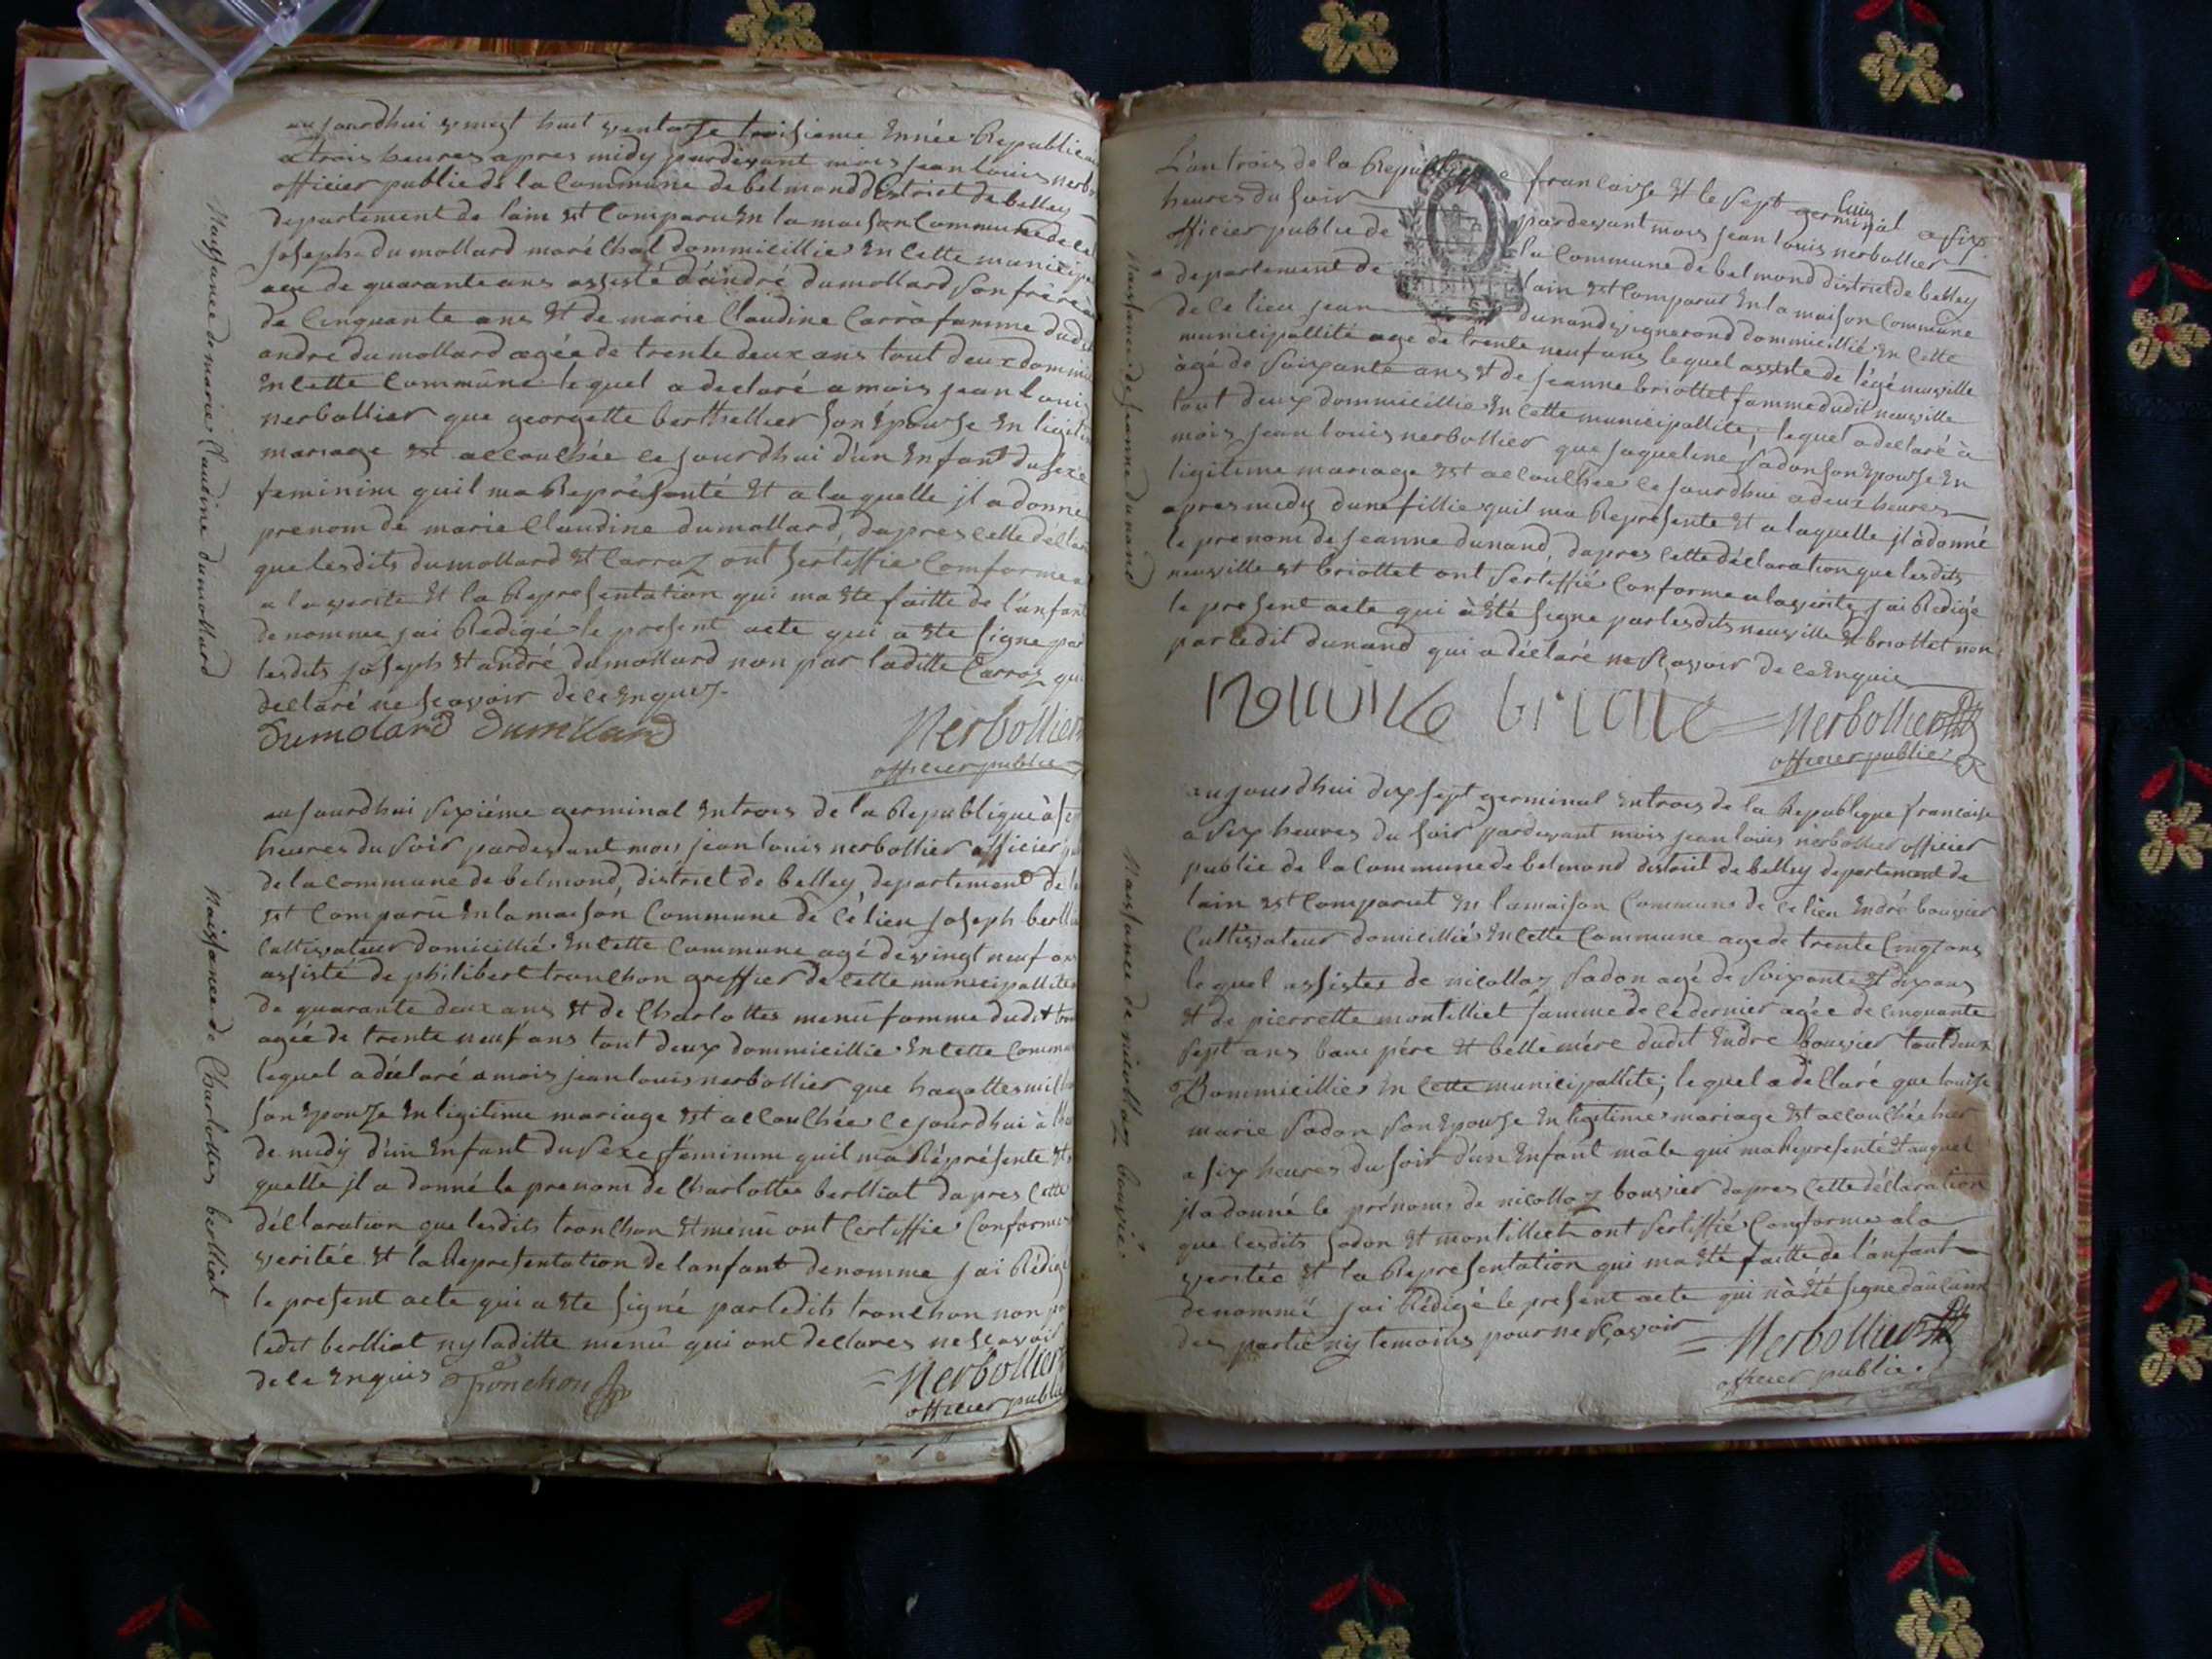 aujourdhui vingt huit ventose troisieme Année Republic
a trois heures apres midy pardevant mois jean louis nerb
officier public de la Commune de belmond district de belley
departement de lain est Comparu En la maison Commune de ce
joseph dumollard maréchal dommicillié En Cette municip
age de quarante ans assisté d'andré dumollard son frère
de Cinquante ans Et de marie Claudine Carrà famme dud
andré dumollard agée de trente deux ans tout deux dommi
En Cette Commune lequel a declaré a mois jean Louis
nerbollier que georgette berthellier son Epouse En ligiti
mariage est accouchée ce jourdhui d'un Enfant du sexe
feminim quil ma Représanté Et a laquelle jl a donné
prenom de marie Claudine dumollard, dapres cette décla
que lesdits dumollard Et Carraz ont sertiffié Comforme
a la verite Et la Representation qui ma Ete faitte de l'anfan
denommé jai Redigé le present acte qui a Ete signe par
lesdits joseph Et andré dumollard non par laditte Carraz qu
declaré ne sçavoir de ce Enquis.
Dumolard Dumollard
Nerbollier
officier public
Naissance de marie Claudine dumollard
aujourdhui sixième germinal En trois de la Republique à s
heures du soir pardevant mois jean louis nerbollier officier
de la commune de belmond, district de belley, departement de
est Comparu En la maison Commune de ce lieu joseph berlliat
Cultivateur domicillié En Cette Commune agé de vingt neuf an
assisté de philibert tronchon greffier de Cette municipallité
de quarante deux ans Et de Charlottes menu famme dudit tron
agée de trente neuf ans tout deux dommicillie En Cette Commu
lequel a déclaré a mois jean louis nerbollier que
son Epouse En ligitime mariage Est accouchée ce jourdhui à
de midy d'un Enfant du sexe féminim quil ma Réprésente Et
quelle jl a donné le prenom de Charlottes berlliat dapres Cette
déclaration que lesdits tronchon Et menu ont Certiffié Conforme
veritée Et la Representation de lanfant denomme jai Rédigé
le present acte qui a Ete signé par ledits tronchon non pa
ledit berlliat ny laditte menu qui ont declares ne sçavoir
de ce Enquis Tronchon
Nerbollier
officier public
Naissance de Charlottes berlliat
L'an trois de la Republique francaise Et le sept germinal a six
heures du soir pardevant mois jean louis nerbollier
officier public de la Commune de belmond district de belley
departement de lain Est Comparut En la maison Commune
de ce lieu jean dunand vigneron dommicillié En Cette
municipallité age de trente neuf ans lequel assiste de neuville
àgé de soixante ans Et de jeanne briottet famme dudit neuville
tout deux dommicillie En Cette municipallite, lequel a declaré à
mois jean louis nerbollier que jaqueline sadon son Epouse En
ligitime mariage Est accouchée ce jourdhui a deux heures
apres midy dune fillie quil ma Représente Et a laquelle jl a donné
le prenom de jeanne dunand, dapres Cette déclaration que lesdits
neuville et briottet ont sertiffié Conforme a la verite, jai Redigé
le present acte qui à été signe par lesdits neuville Et briottet non
par ledit dunand qui a déclaré ne sçavoir de ce Enquis
Nerbollier
officier public
Naissance de jeanne dunand
aujourdhui dixsept germinal En trois de la Republique francaise
a six heures du soir pardevant mois jean louis nerbollier officier
public de la Commune de belmond district de belley departement de
lain est Comparut En la maison Commune de ce lieu Endré bouvier
Cultivateur domicillié En Cette Commune age de trente Cinq ans
lequel assistes de nicollaz sadon agé de soixante Et dix ans
Et de pierrette montilliet famme de ce dernier agée de cinquante
sept ans baux père Et bélle mére dudit Endre bouvier tout deux
Dommicillies En Cette municipallite; lequel a déclaré que louise
marie sadon son Epouse En ligitime mariage Est accouchée hier
a six heures du soir d'un Enfant mâle qui ma Représenté Et auquel
jl a donné le prénoms de nicollaz bouvier dapres Cette déclaration
que lesdits sadon Et montilliet ont sertiffié Comforme a la
veritée Et la Representation qui ma Eté faitte de l'anfant
denommé jai Rédigé le present acte qui n'à Eté signe daucunne
des partie ny temoins pour ne sçavoir
Nerbollier
officier public.
Naissance de nicollaz bouvier